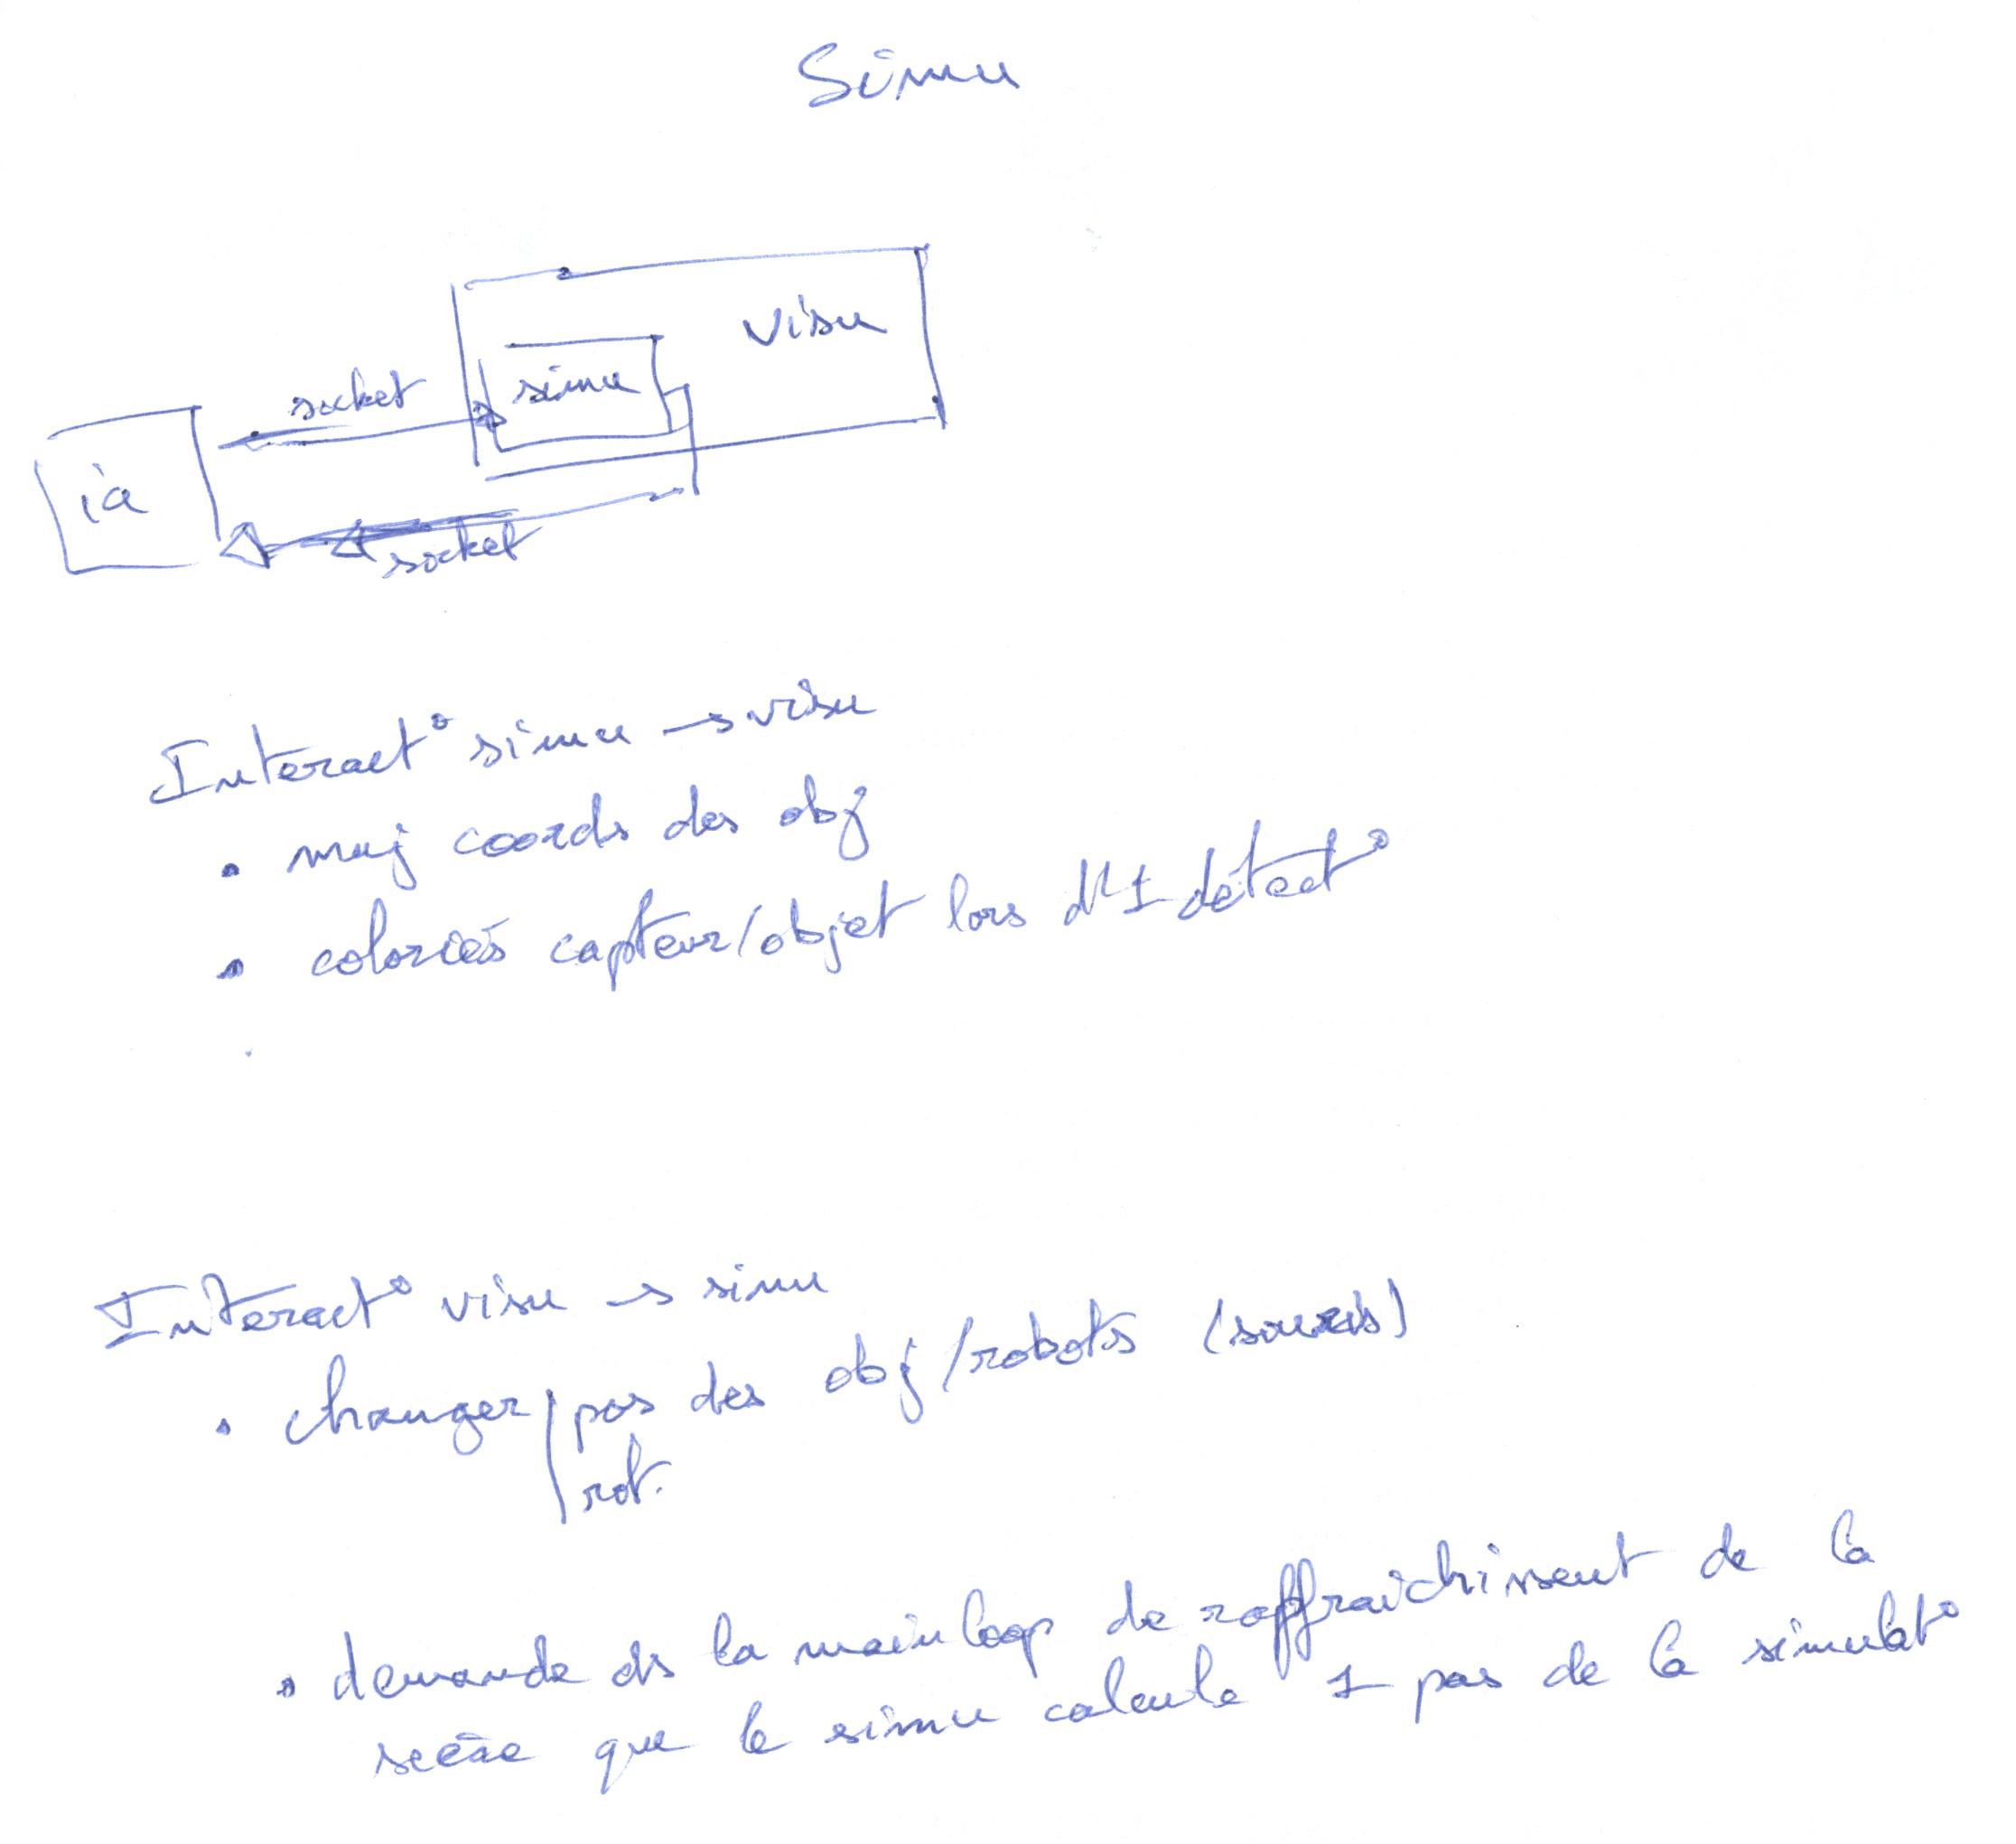 Simu
visu
simu
socket
ia
socket
Interact° simu → visu
• maj coords des obj
• colories capteur/objet lors d'1 détect°
Interact° visu → simu
• changer pos des obj/robots (souris)
rot.
• demande ds la mainloop de raffraichissent de la
scène que le simu calcule 1 pas de la simulat°